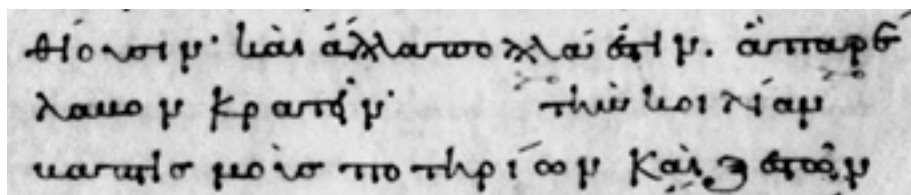 θίουσιν· καὶ ἄλλα πολλά ἐστιν. ἃ παρέ
λαβον κρατεῖν· τὴν κοιλίαν
βαπτισμοὺσ ποτηρίων καὶ ξεστῶν